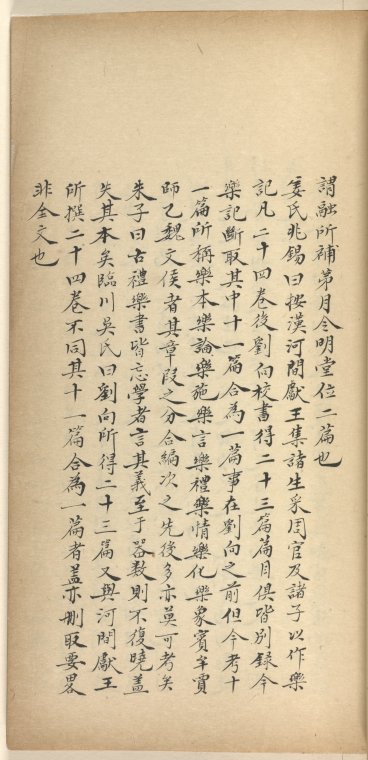 謂融所補第月令明堂位二篇也
姜氏兆錫曰按漢河間獻王集諸生采周官及諸子以作樂
記凡二十四卷後劉向校書得二十三篇篇目俱皆別録今
樂記斷取其中十一篇合為一篇事在劉向之前但今考十
一篇所稱樂本樂論樂施樂言樂禮樂情樂化樂象賓牟賈
師乙魏文侯者其章段之分合編次之先後多亦莫可考矣
朱子曰古禮樂書皆忘學者言其義至于器数則不復曉蓋
失其本矣臨川吳氏曰劉向所得二十三篇又與河間獻王
所撰二十四卷不同其十一篇合為一篇者盖亦刪取要畧
非全文也